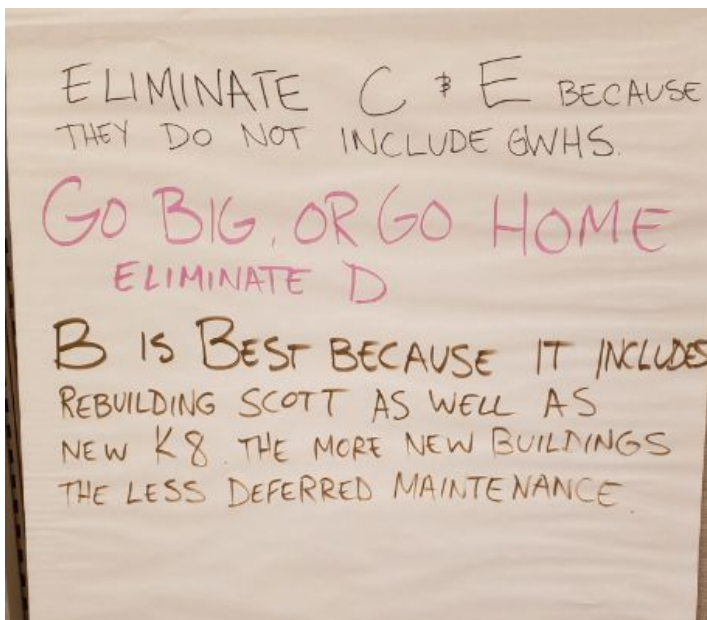 ELIMINATE C & E BECAUSE
THEY DO NOT INCLUDE GWHS.
GO BIG, OR GO HOME
ELIMINATE D
B IS BEST BECAUSE IT INCLUDES
REBUILDING SCOTT AS WELL AS
NEW K8. THE MORE NEW BUILDINGS
THE LESS DEFERRED MAINTENANCE.